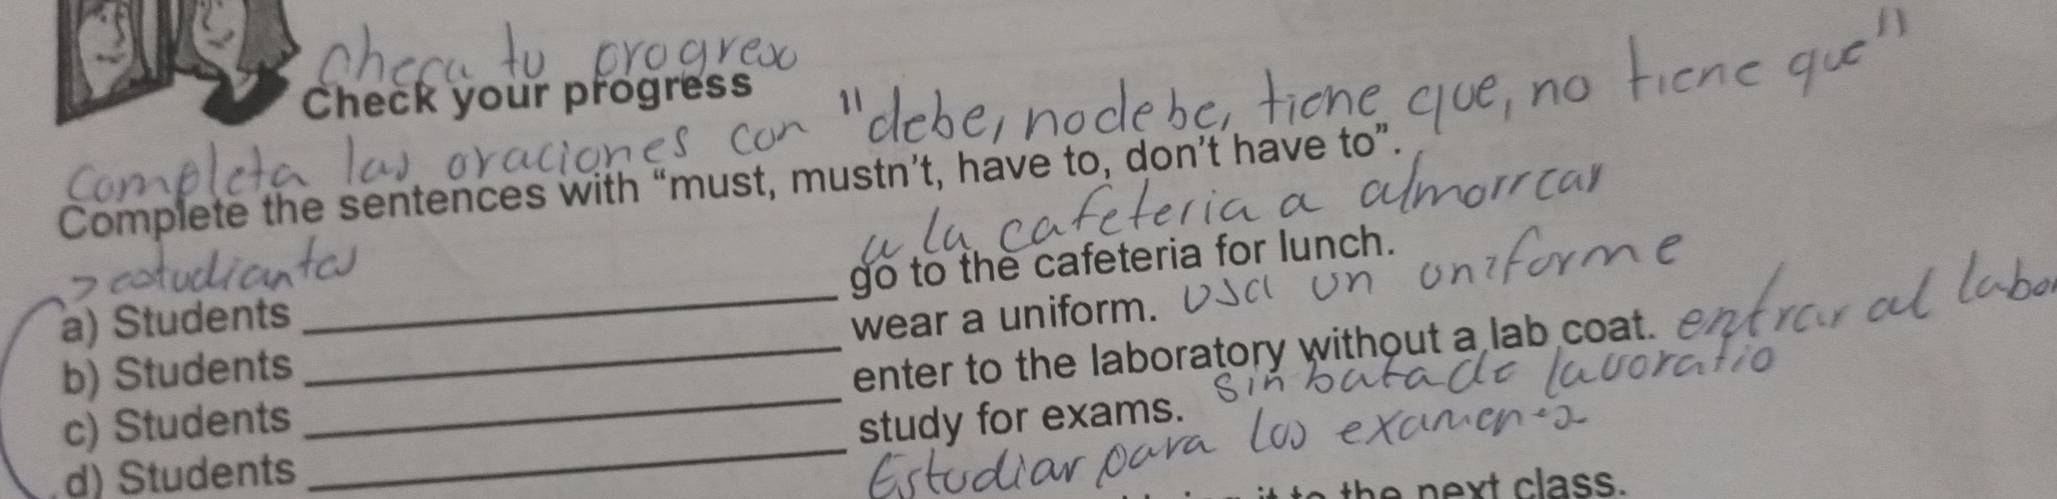 checa tu progreso
Check your progress
completa las oraciones con "debe, no debe, tiene que, no tiene que"
Complete the sentences with “must, mustn't, have to, don't have to”.
estudiantes a la cafeteria a almorrcar
a) Students ____ go to the cafeteria for lunch.
b) Students ____ wear a uniform. usa un uniforme
c) Students ____ enter to the laboratory without a lab coat. entrar al labor
sin bata de lavoratio
d) Students ____ study for exams.
Estudiar para los examenes
it to the next class.